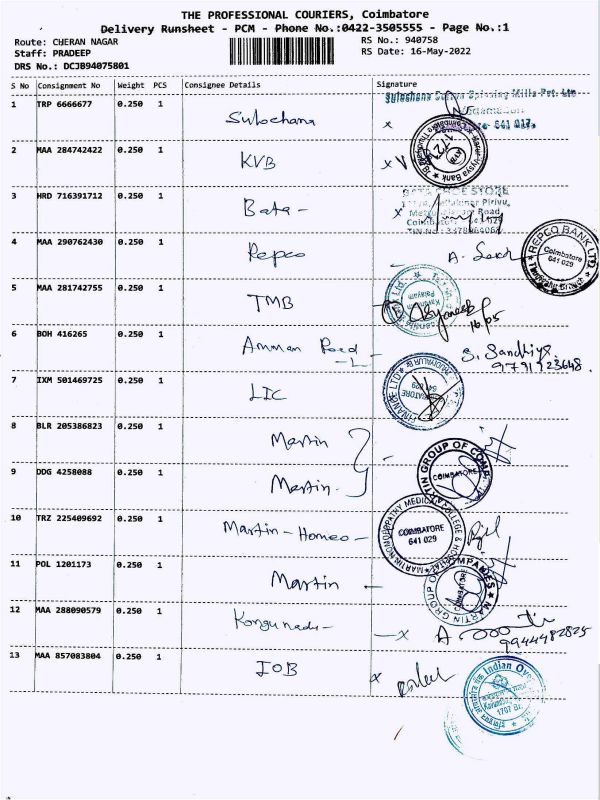 THE PROFESSIONAL COURIERS, Coimbatore
Delivery Runsheet - PCM - Phone No.:0422-3505555 - Page No.:1
Route: CHERAN NAGAR
RS No.: 940758
Staff: PRADEEP
RS Date: 16-May-2022
DRS No.: DCJB94075801
S No Consignment No Weight PCS Consignee Details Signature
1 TRP 6666677 0.250 1 Sulochana x
Mills Pvt. Ltd
641 017.
2 MAA 284742422 0.250 1 KVB x
Vysya Bank
3 HRD 716391712 0.250 1 Bata - x
BATA SHOE STORE
Road,
4 MAA 290762430 0.250 1 Repco
REPCO BANK LTD.
Coimbatore
641 029
5 MAA 281742755 0.250 1 TMB
16.05
6 BOH 416265 0.250 1 Amman Road - L - S. Sandhiya
9791923648
7 IXM 501469725 0.250 1 LIC
FINANCE LTD
8 BLR 205386823 0.250 1 Martin
9 DDG 4258088 0.250 1 Martin
MARTIN GROUP OF COMP
COIMBATORE
10 TRZ 225409692 0.250 1 Martin - Homeo -
MARTIN HOMOEOPATHY MEDICAL COLLEGE & HOSPITAL
COIMBATORE
641 029
11 POL 1201173 0.250 1 Martin -
MARTIN GROUP OF COMPANIES
COIMBATORE
12 MAA 288090579 0.250 1 Kongunadu - x
9944482825
13 MAA 857083804 0.250 1 IOB x
Indian Over
1707 Br.